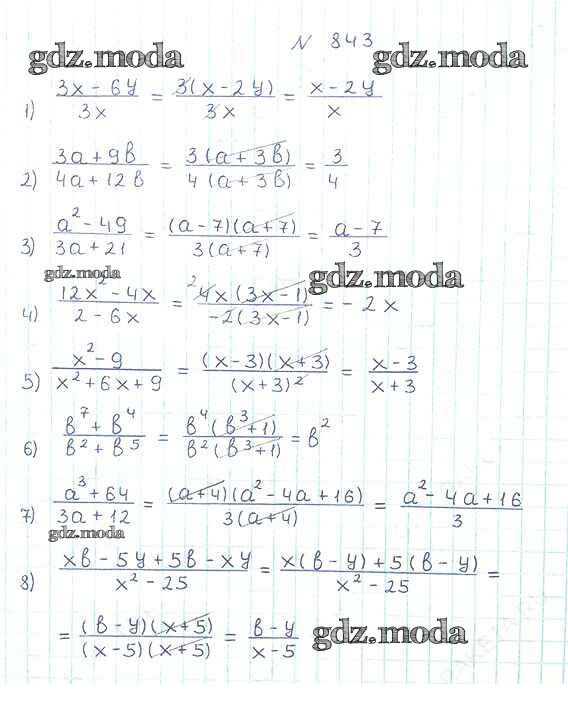 N 843
gdz.moda gdz.moda
1) (3x - 6y)/(3x) = (3(x - 2y))/(3x) = (x - 2y)/x
2) (3a + 9в)/(4a + 12в) = (3(a + 3в))/(4(a + 3в)) = 3/4
3) (a² - 49)/(3a + 21) = ((a - 7)(a + 7))/(3(a + 7)) = (a - 7)/3
gdz.moda gdz.moda
4) (12x² - 4x)/(2 - 6x) = (²4x(3x - 1))/(-2(3x - 1)) = - 2x
5) (x² - 9)/(x² + 6x + 9) = ((x - 3)(x + 3))/((x + 3)²) = (x - 3)/(x + 3)
6) (в⁷ + в⁴)/(в² + в⁵) = (в⁴(в³ + 1))/(в²(в³ + 1)) = в²
7) (a³ + 64)/(3a + 12) = ((a + 4)(a² - 4a + 16))/(3(a + 4)) = (a² - 4a + 16)/3
gdz.moda
8) (xв - 5y + 5в - xy)/(x² - 25) = (x(в - y) + 5(в - y))/(x² - 25) =
= ((в - y)(x + 5))/((x - 5)(x + 5)) = (в - y)/(x - 5)
gdz.moda